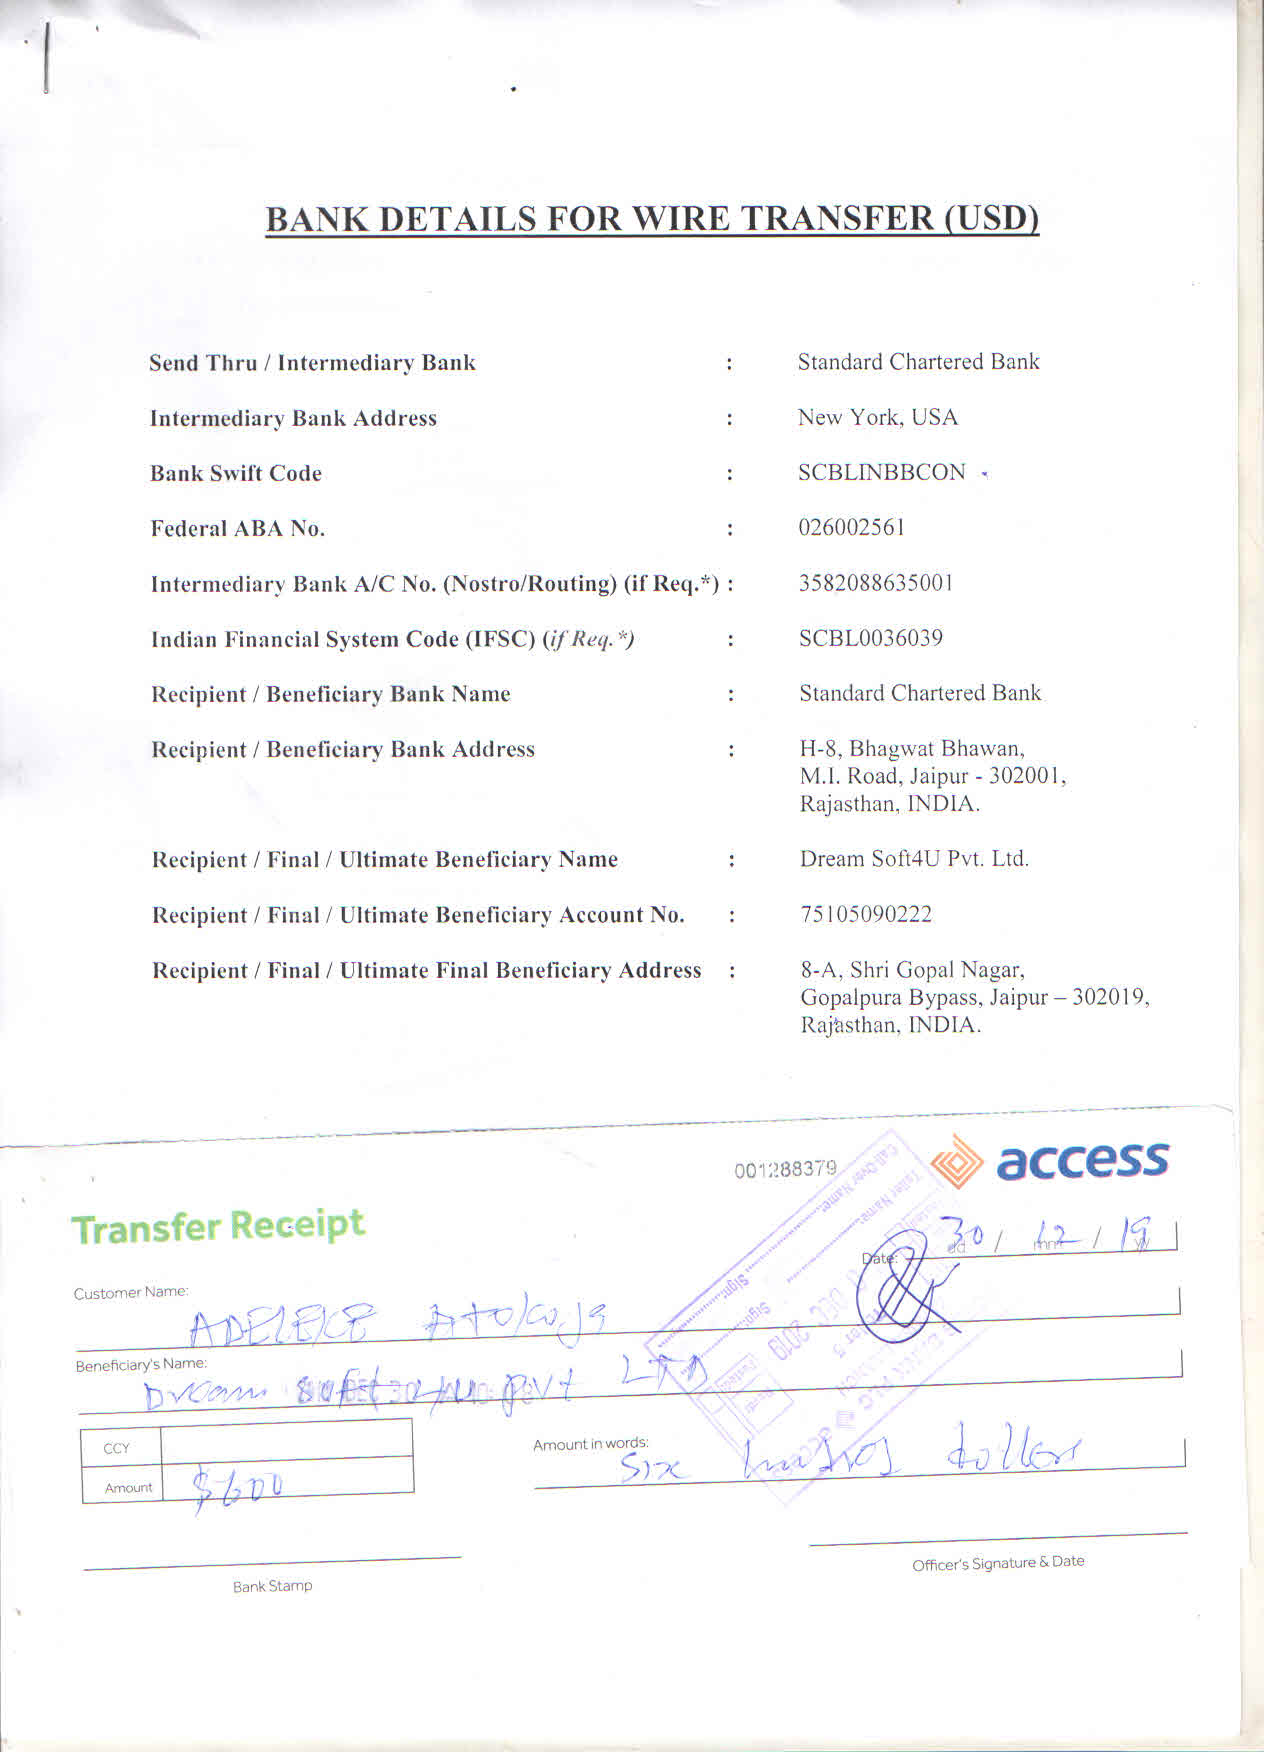 BANK DETAILS FOR WIRE TRANSFER (USD)
Send Thru / Intermediary Bank : Standard Chartered Bank
Intermediary Bank Address : New York, USA
Bank Swift Code : SCBLINBBCON
Federal ABA No. : 026002561
Intermediary Bank A/C No. (Nostro/Routing) (if Req.*) : 3582088635001
Indian Financial System Code (IFSC) (if Req.*) : SCBL0036039
Recipient / Beneficiary Bank Name : Standard Chartered Bank
Recipient / Beneficiary Bank Address : H-8, Bhagwat Bhawan,
M.I. Road, Jaipur - 302001,
Rajasthan, INDIA.
Recipient / Final / Ultimate Beneficiary Name : Dream Soft4U Pvt. Ltd.
Recipient / Final / Ultimate Beneficiary Account No. : 75105090222
Recipient / Final / Ultimate Final Beneficiary Address : 8-A, Shri Gopal Nagar,
Gopalpura Bypass, Jaipur – 302019,
Rajasthan, INDIA.
001288379 access
Transfer Receipt
Date: 30 / 12 / 19
Customer Name:
ADELEKE
Beneficiary's Name:
Dream soft4u pvt LTD
CCY
Amount in words:
Six dollar
Amount $600
Bank Stamp
Officer's Signature & Date
Call Over Name:
Sign:
Teller Name:
Sign:
DEC 2019